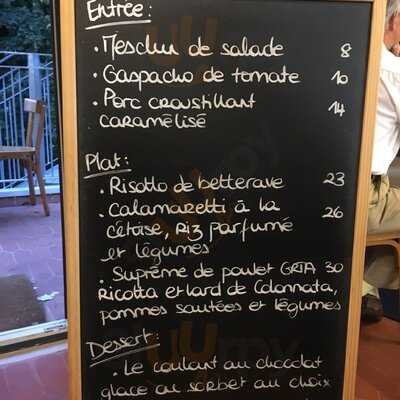 Entrée:
• Mesclun de salade 8
• Gaspacho de tomate 10
• Porc croustillant 14
caramélisé
Plat:
• Risotto de betterave 23
• Calamaretti à la 26
cétoise, Riz parfumé
et légumes
• Suprême de poulet GRTA 30
Ricotta et lard de Colonnata,
pommes sautées et légumes
Dessert:
• Le coulant au chocolat
glace ou sorbet au choix